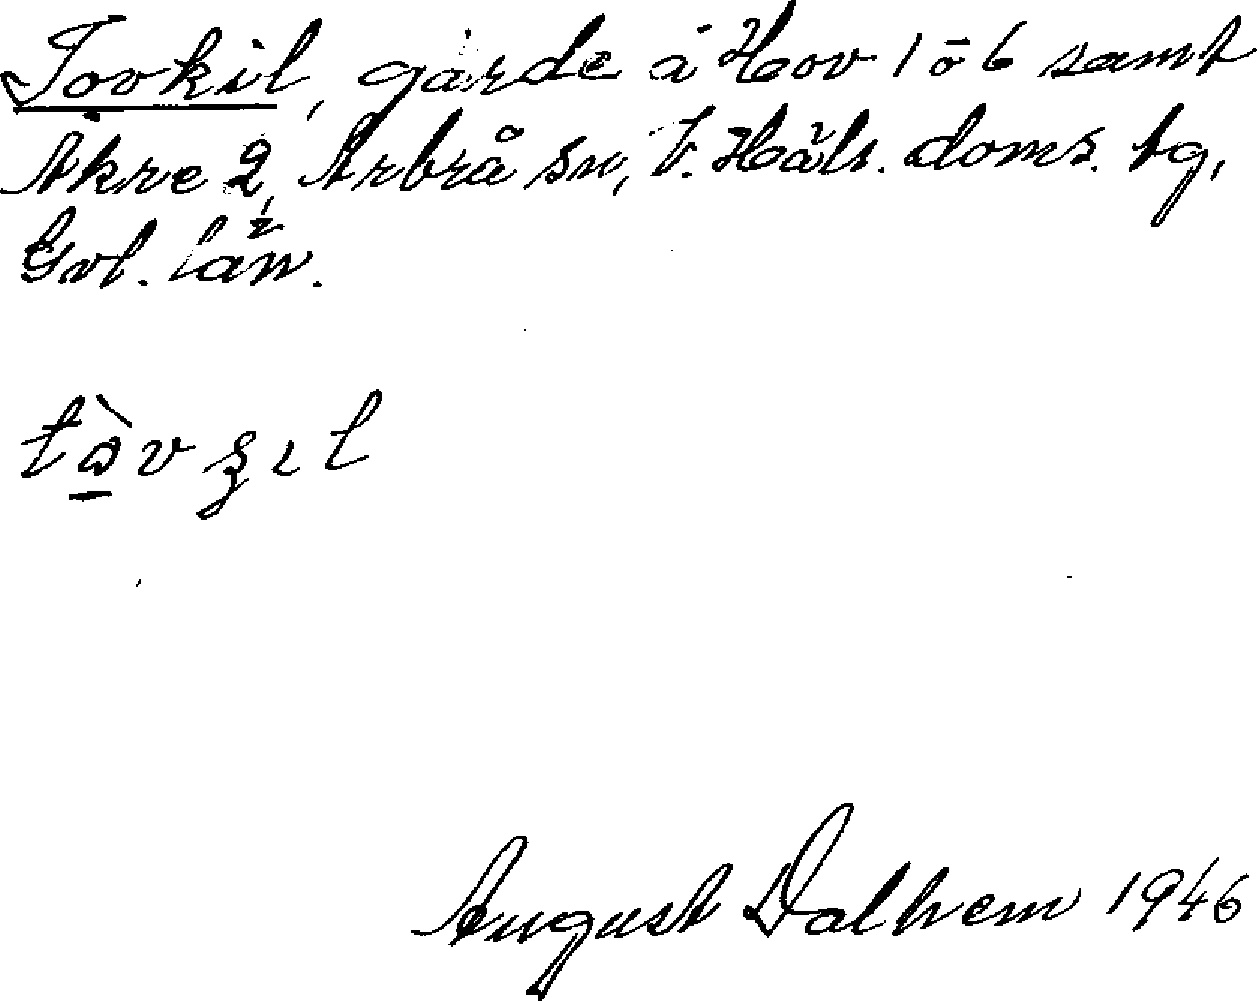 Tovkil, gärde å Hov 1 o 6 samt
Åkre 2, Arbrå sn, V. Häls. doms. hg,
Gvl. län.
tàvʂıl
August Dalhem 1946